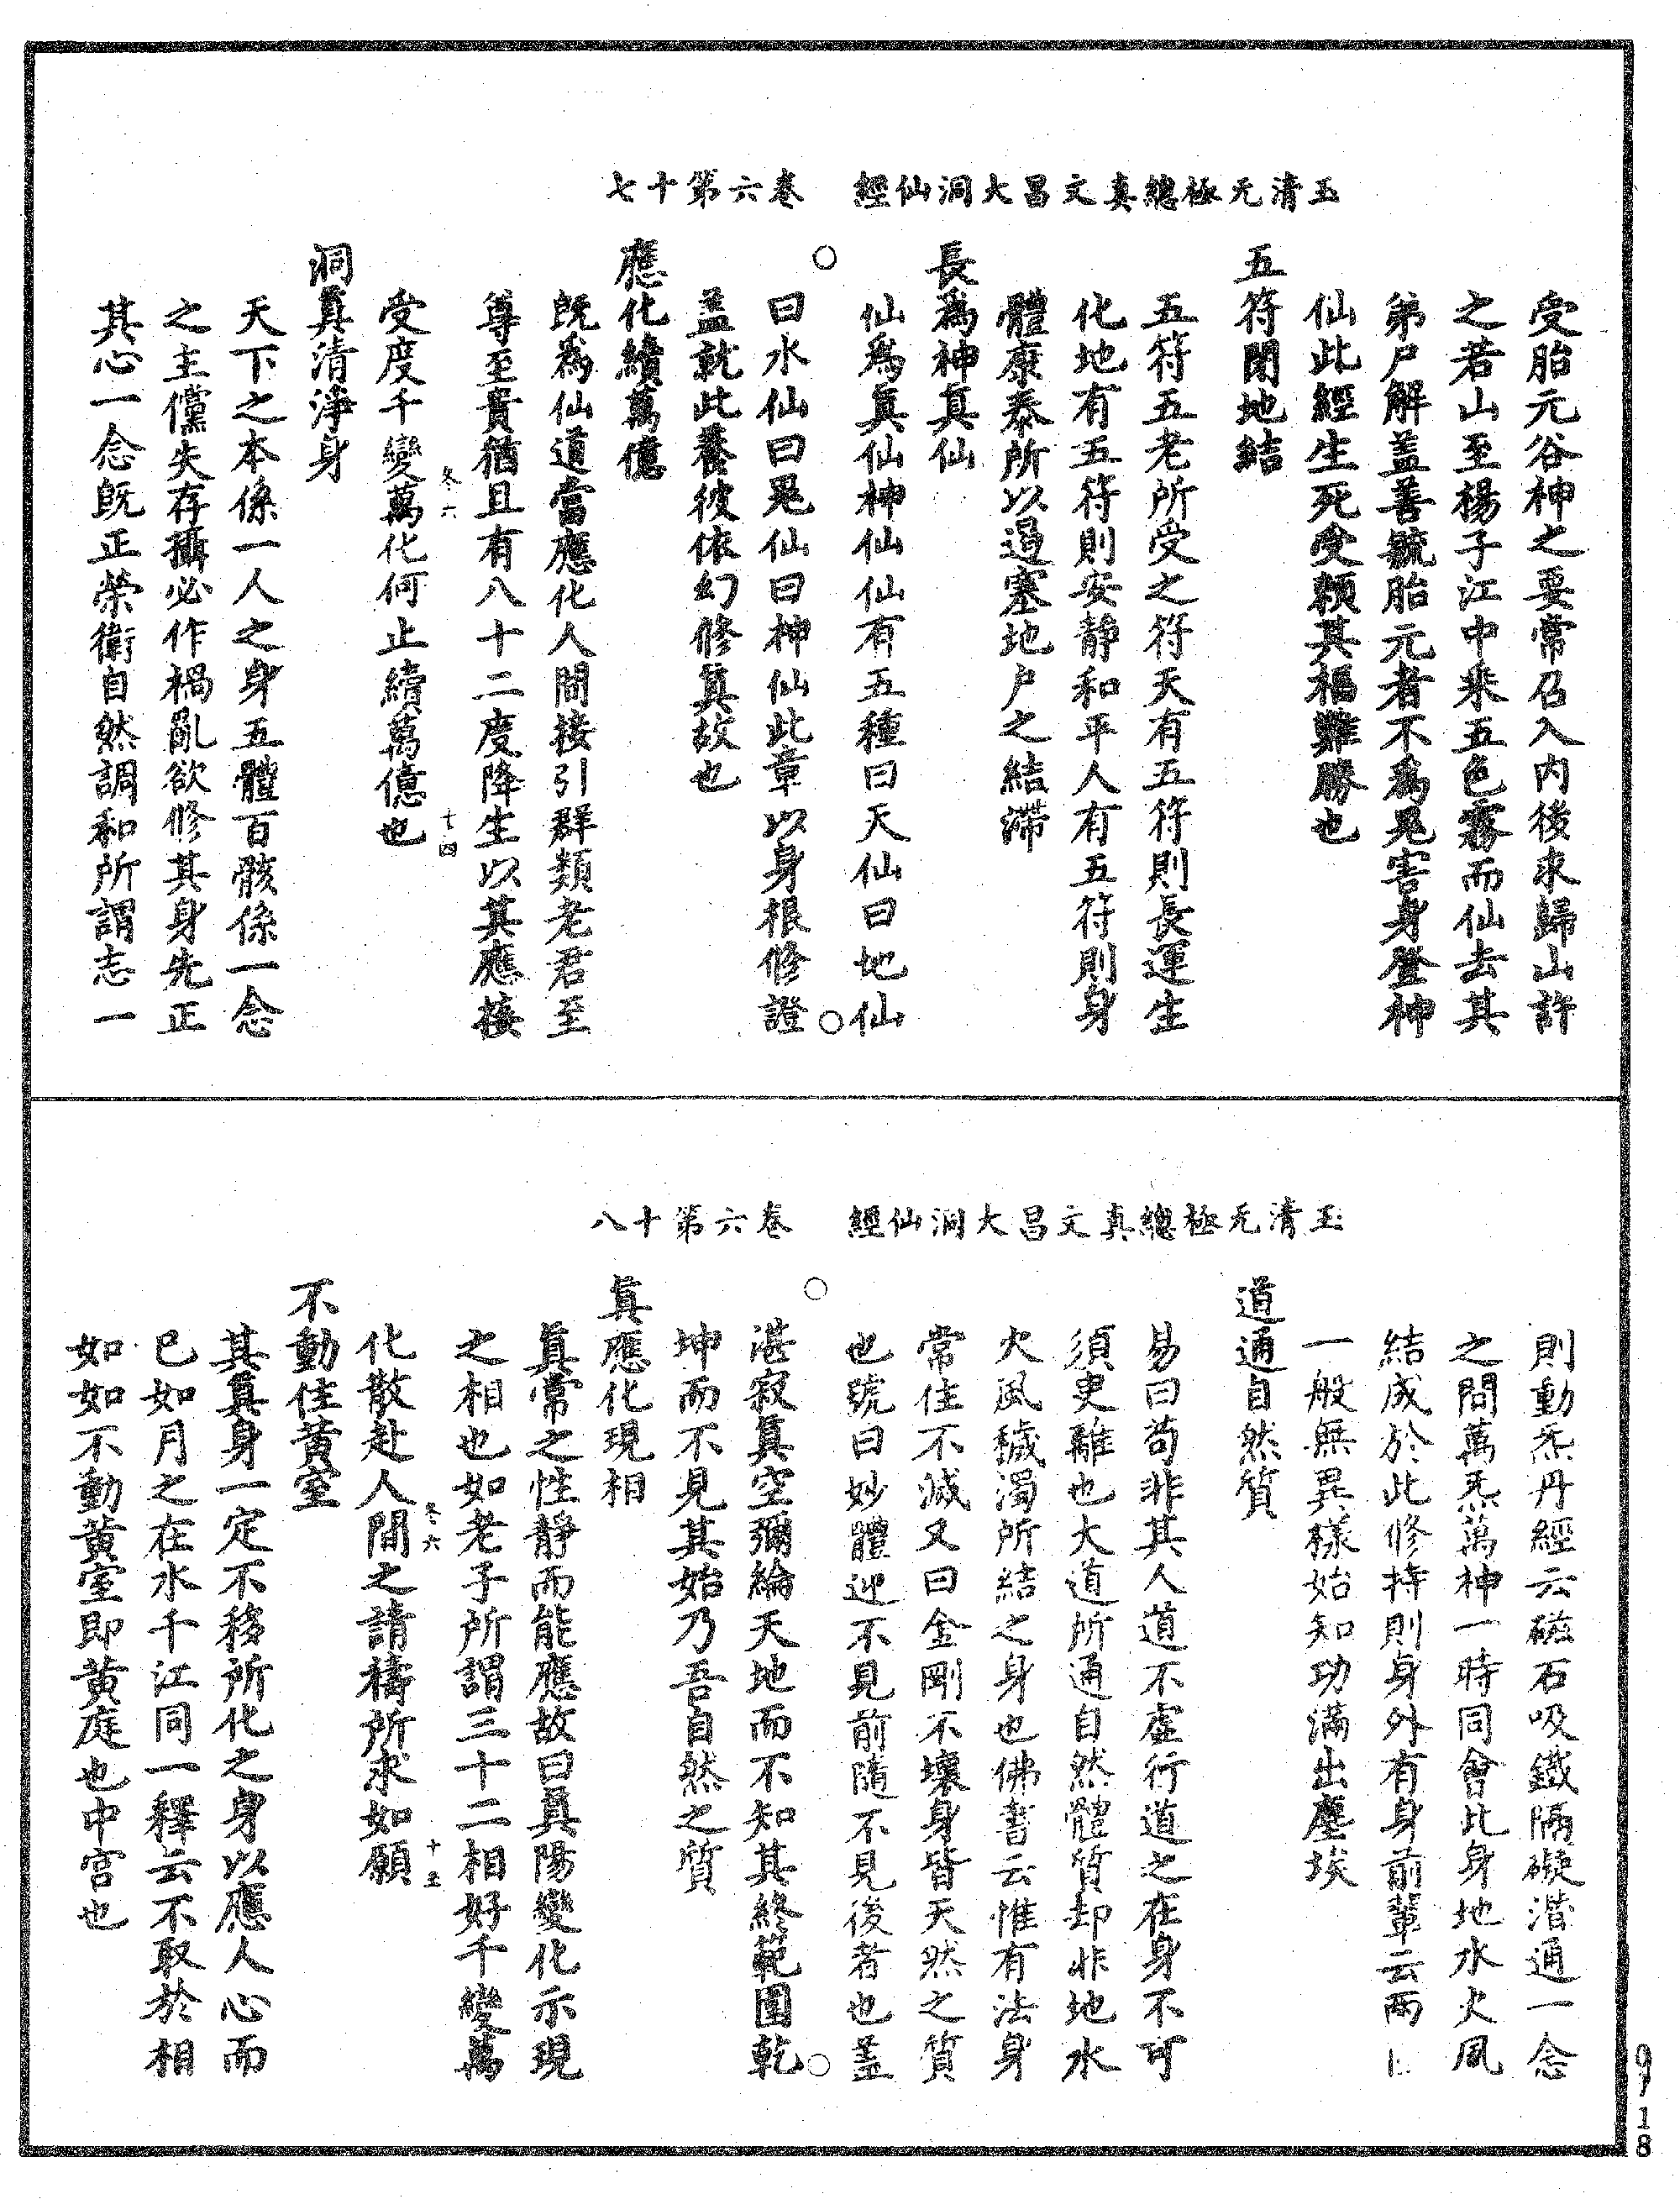 玉清无極總真文昌大洞仙經　卷六第十七
受胎元谷神之要常召入内後求歸山許
之若山至楊子江中乘五色霧而仙去其
弟尸解蓋善毓胎元者不爲鬼害身登神
仙此經生死受賴其福難勝也
五符閉地結
五符五老所受之符天有五符則長運生
化地有五符則安靜和平人有五符則身
體康泰所以遏塞地戶之結滯
長爲神真仙
仙爲真仙神仙仙有五種曰天仙曰地仙
曰水仙曰鬼仙曰神仙此章以身根修證
蓋就此養彼依幻修真故也
應化續萬億
既爲仙道當應化人間接引群類老君至
尊至貴猶且有八十二度降生以其應接
受度千變萬化何止續萬億也
冬六　十四
洞真清淨身
天下之本係一人之身五體百骸係一念
之主儻失存攝必作禍亂欲修其身先正
其心一念既正榮衛自然調和所謂志一
玉清无極總真文昌大洞仙經　卷六第十八
則動炁丹經云磁石吸鐵隔礙潛通一念
之間萬炁萬神一時同會此身地水火風
結成於此修持則身外有身前輩云兩
一般無異樣始知功滿出塵埃
道通自然質
易曰苟非其人道不虛行道之在身不可
須叟離也大道所通自然體質却非地水
火風穢濁所結之身也佛書云惟有法身
常住不滅又曰金剛不壞身皆天然之質
也號曰妙體迎不見前隨不見後者也蓋
湛寂真空彌綸天地而不知其終範圍乾
坤而不見其始乃吾自然之質
真應化現相
真常之性靜而能應故曰真陽變化示現
之相也如老子所謂三十二相好千變萬
化散赴人間之請禱所求如願
冬六　十五
不動住黄室
其真身一定不移所化之身以應人心而
已如月之在水千江同一釋云不取於相
如如不動黄室即黄庭也中宫也
9/18